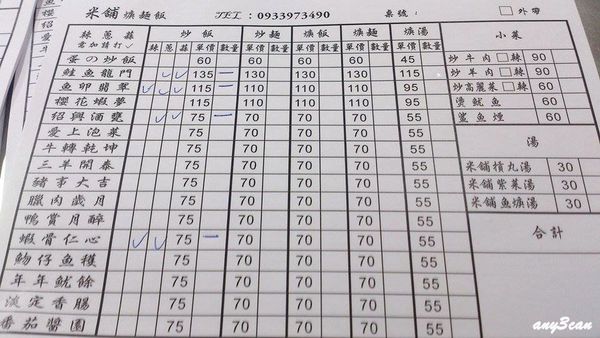 米舖 燴麵飯 TEL：0933973490 桌號： □外帶
辣 蔥 蒜 炒飯 炒麵 燴飯 燴麵 燴湯 小菜
需加請打✓ 辣 蔥 蒜 單價 數量 單價 數量 單價 數量 單價 數量 單價 數量
蛋の炒飯 60 60 60 60 45 炒牛肉□辣 90
鮭魚龍門 ✓ ✓ 135 一 130 130 130 115 炒羊肉□辣 90
魚卵翡翠 ✓ ✓ ✓ 115 一 110 110 110 95 炒高麗菜□辣 60
櫻花蝦夢 115 110 110 110 95 燙魷魚 60
紹興酒甕 ✓ ✓ 75 一 70 70 70 55 鯊魚煙 60
愛上泡菜 75 70 70 70 55
牛轉乾坤 75 70 70 70 55 湯
三羊開泰 75 70 70 70 55 米舖摃丸湯 30
豬事大吉 75 70 70 70 55 米舖紫菜湯 30
臘肉歲月 75 70 70 70 55 米舖魚燴湯 30
鴨賞月醉 75 70 70 70 55 合計
蝦骨仁心 ✓ ✓ 75 一 70 70 70 55
魩仔魚穫 75 70 70 70 55
年年魷餘 75 70 70 70 55
淡定香腸 75 70 70 70 55
番茄醬園 75 70 70 70 55
any3can